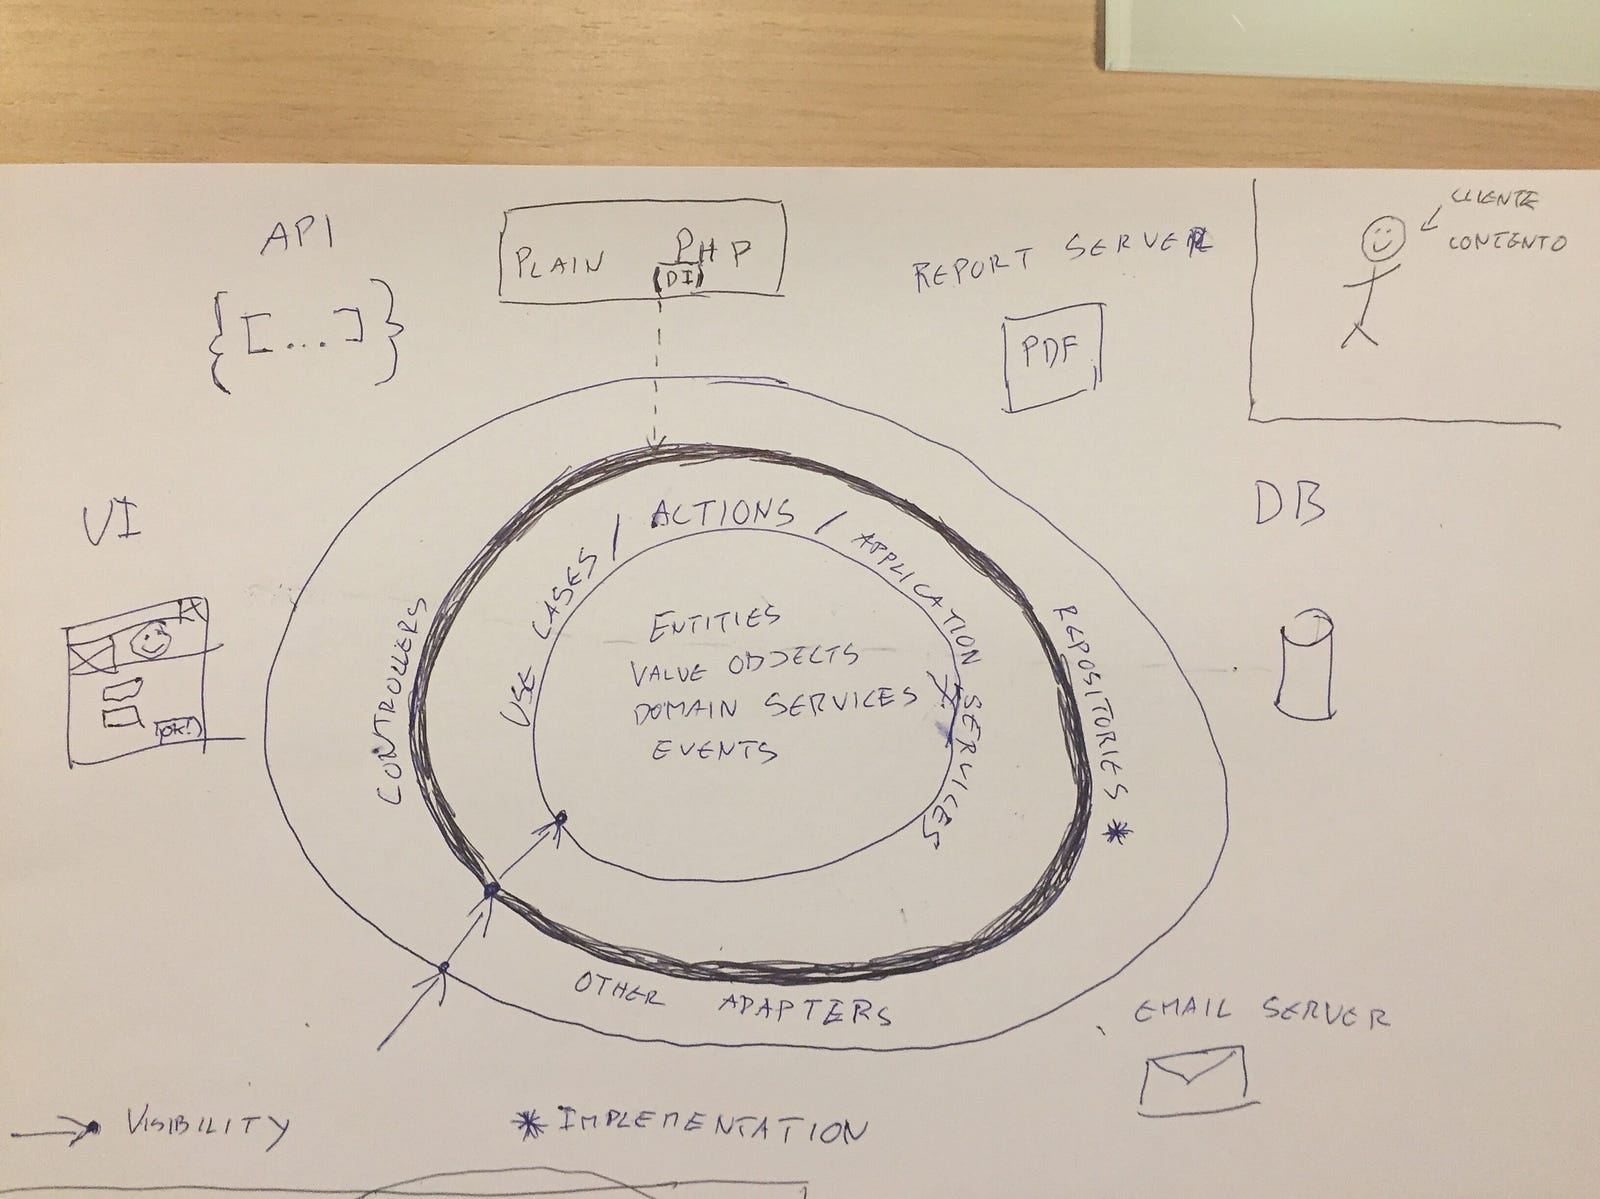 API
{[...]}
PLAIN PHP
(DI)
REPORT SERVER
PDF
CLIENTE
CONTENTO
UI
OK!
DB
USE CASES / ACTIONS / APPLICATION SERVICES
CONTROLLERS
REPOSITORIES *
ENTITIES
VALUE OBJECTS
DOMAIN SERVICES
EVENTS
OTHER ADAPTERS
EMAIL SERVER
VISIBILITY
* IMPLEMENTATION